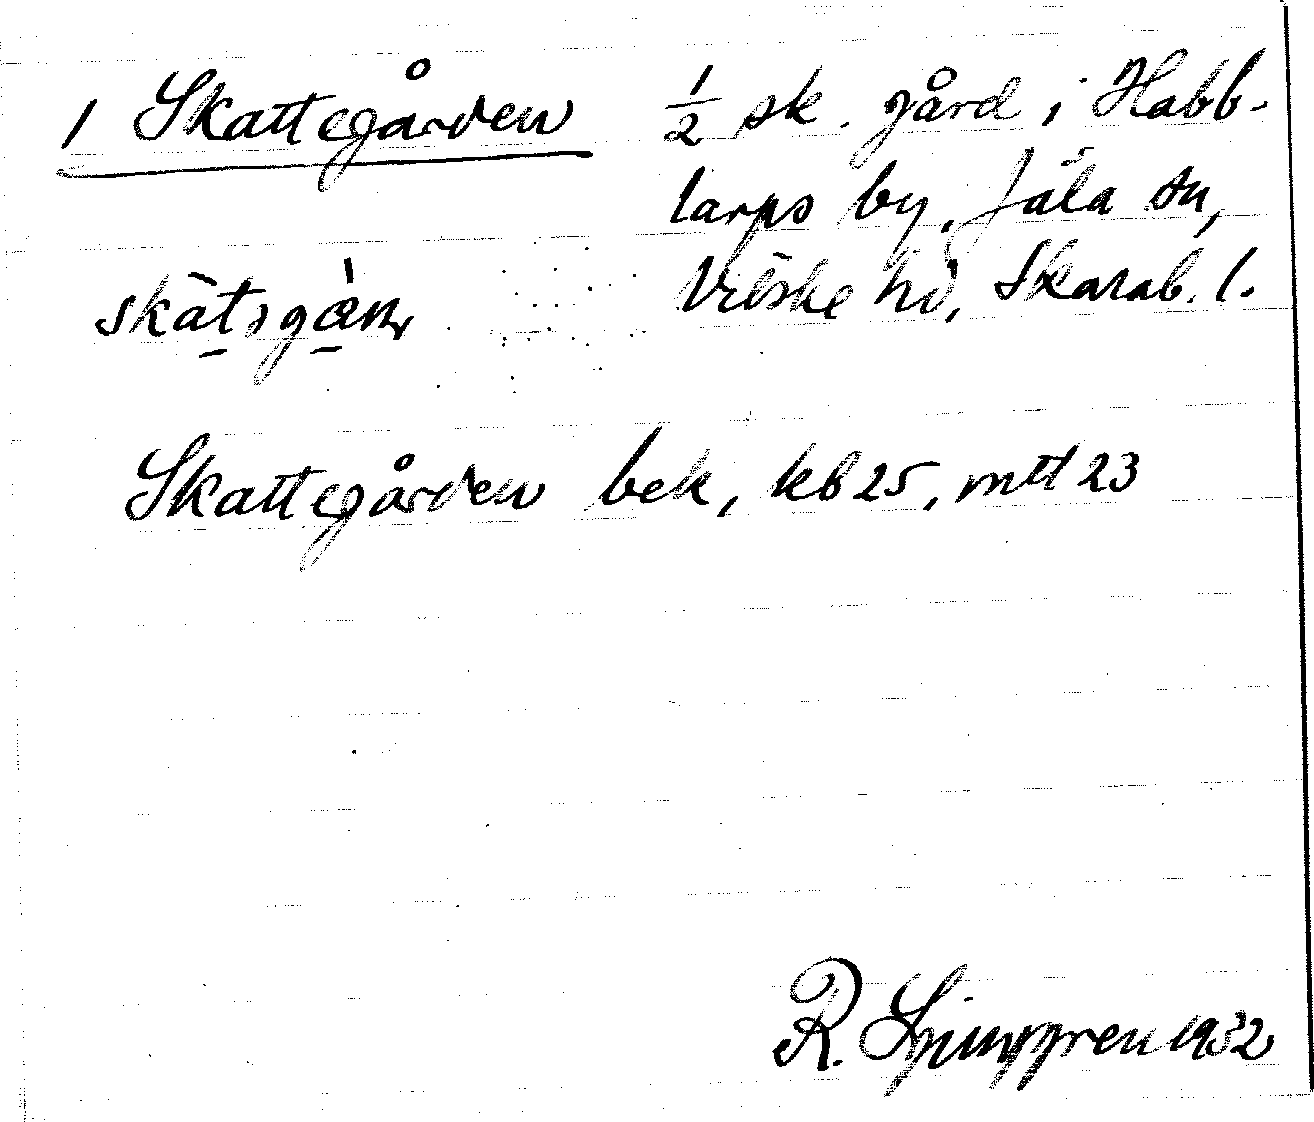 1 Skattegården ½ sk. gård i Habb-
larps by, Jäla sn,
Vilske hd, Skarab. l.
Skattegården bek, kb 25, mtt 23
R. Ljunggren 1932